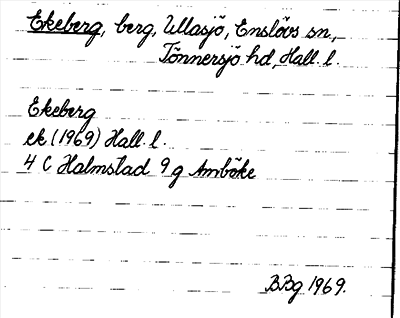 Ekeberg, berg, Ullasjö, Enslövs sn.,
Tönnersjö hd, Hall. l.
Ekeberg
ek (1969) Hall. l.
4 C Halmstad 9 g Amböke
BBg 1969.